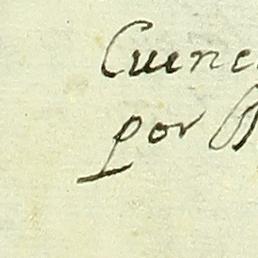 Cuenc
por